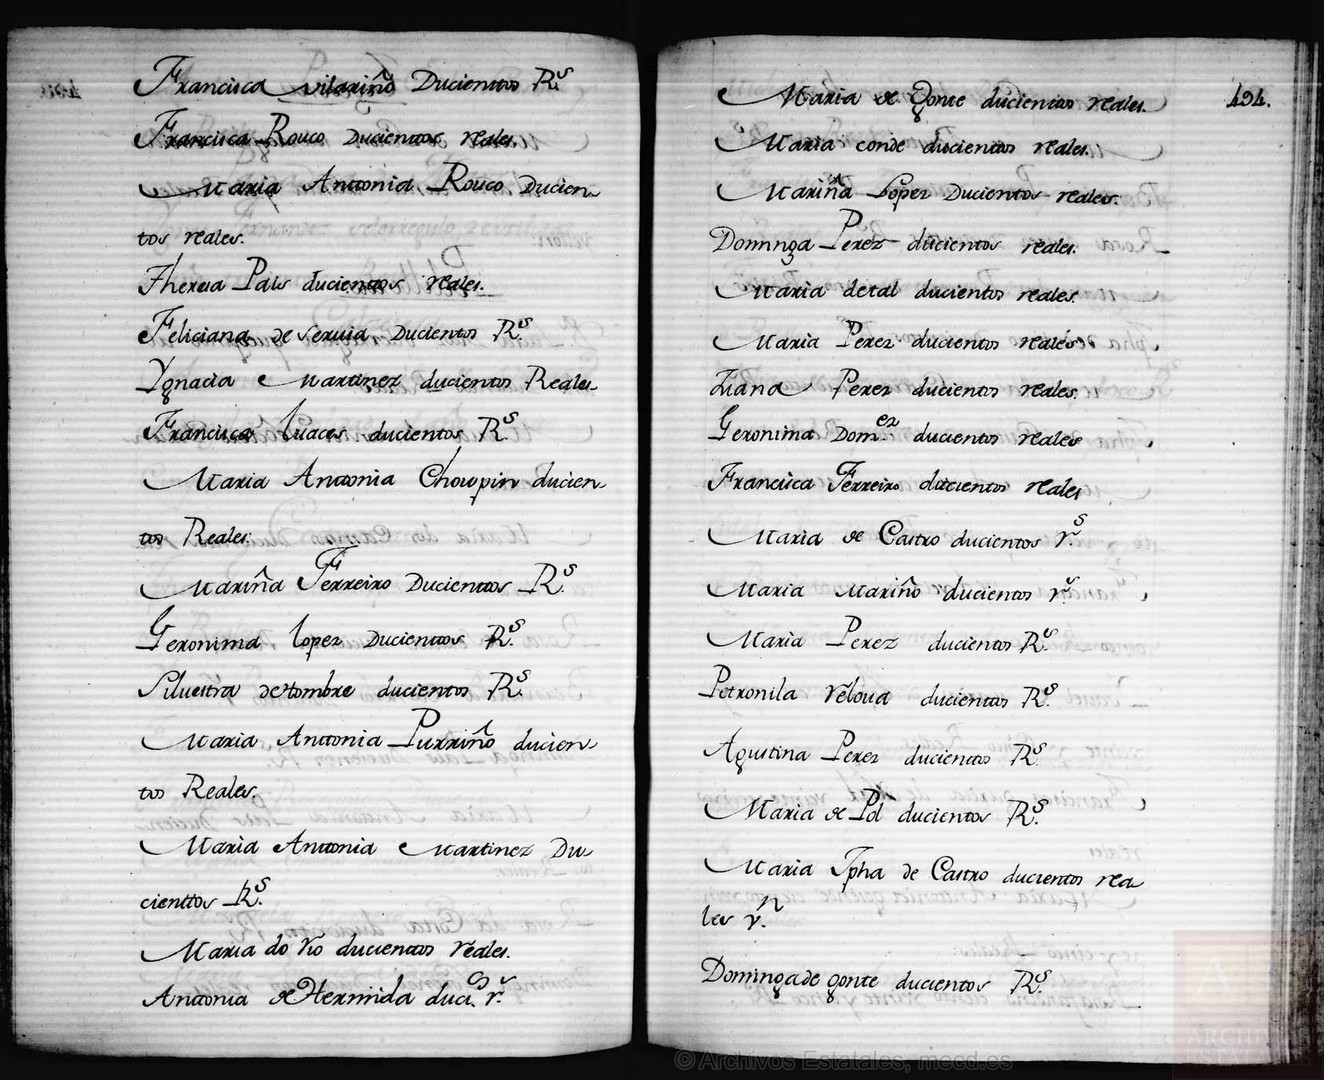 Francisca Vilariño Ducientos R.s
Francisca Rouco Ducientos reales.
Maria Anttonia Rouco Ducien
tos reales.
Theresa Pais ducientos reales.
Feliciana de Seruia Ducientos R.s
Ygnacia Martinez ducientos Reales
Francisca Luaces ducientos R.s
Maria Antonia Chowpin ducien
tos Reales.
Mariña Ferreiro Ducientos R.s
Geronima Lopez Ducienttos R.s
Siluestra detombre ducientos R.s
Maria Anttonia Purriño ducien
tos Reales.
Maria Anttonia Martinez Du
cienttos R.s
Maria do rio ducientos reales.
Antonia de Hermida duc.os r.s
Maria de Gonte ducientos reales.
494.
Maria conde ducientos reales.
Mariña Lopez Ducientos reales.
Dominga Perez ducientos reales.
Maria detal ducientos reales
Maria Perez ducientos reales
Liana Perez ducientos reales.
Geronima Dom.ez ducientos reales
Francisca Ferreiro ducientos reales
Maria de Castro ducientos r.s
Maria Mariño ducientos r.s
Maria Perez ducientos R.s
Petronila reboua ducientos R.s
Agustina Perez ducientos R.s
Maria de Pol ducientos R.s
Maria Jpha de Castro ducientos rea
les v.n
Domingade gonte ducientos R.s
© Archivos Estatales, mecd.es
ARCHIVOS
ESTATALES